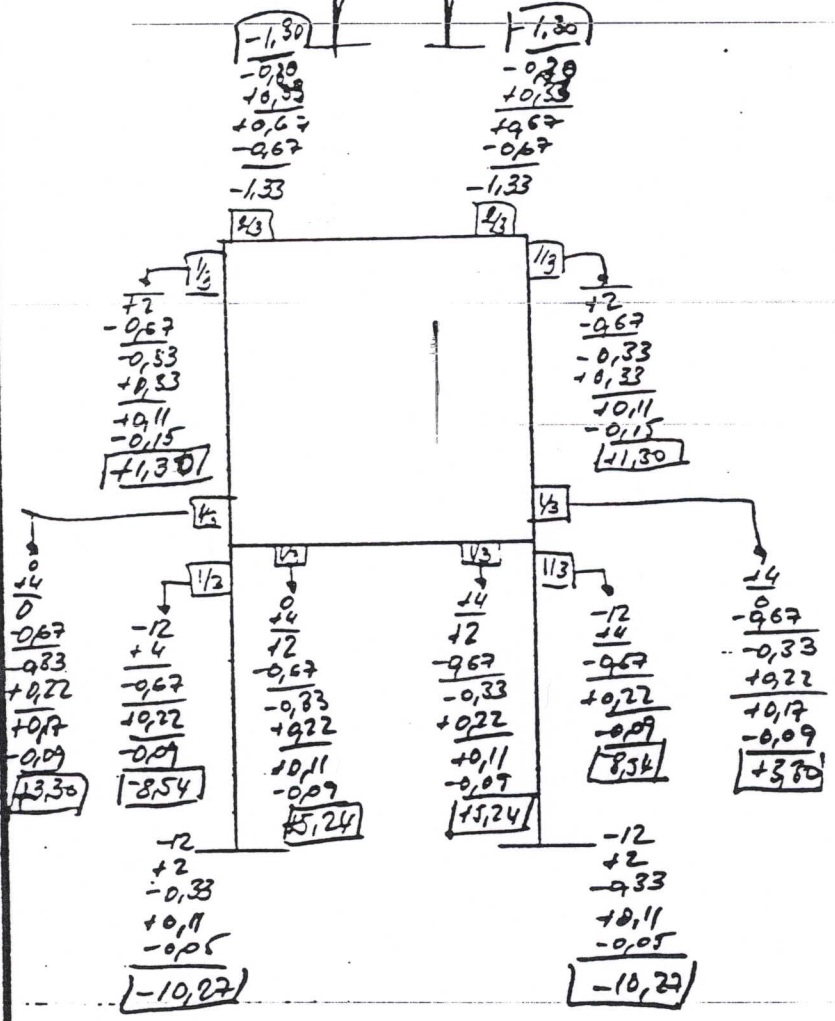 -1,30
-0,20
+0,33
+0,67
-0,67
-1,33
2/3
-1,30
-0,20
+0,33
+0,67
-0,67
-1,33
2/3
1/3
+2
-0,67
-0,33
+0,33
+0,11
-0,15
+1,30
1/3
+2
-0,67
-0,33
+0,33
+0,11
-0,15
+1,30
1/3
0
+4
0
-0,67
-0,33
+0,22
+0,17
-0,09
+3,30
1/3
-12
+4
-0,67
+0,22
-0,09
-8,54
1/3
0
+4
+2
-0,67
-0,33
+0,22
+0,11
-0,09
+5,24
1/3
+4
+2
-0,67
-0,33
+0,22
+0,11
-0,09
+5,24
1/3
-12
+4
-0,67
+0,22
-0,09
-8,54
1/3
+4
0
-0,67
-0,33
+0,22
+0,17
-0,09
+3,30
-12
+2
-0,33
+0,11
-0,05
-10,27
-12
+2
-0,33
+0,11
-0,05
-10,27